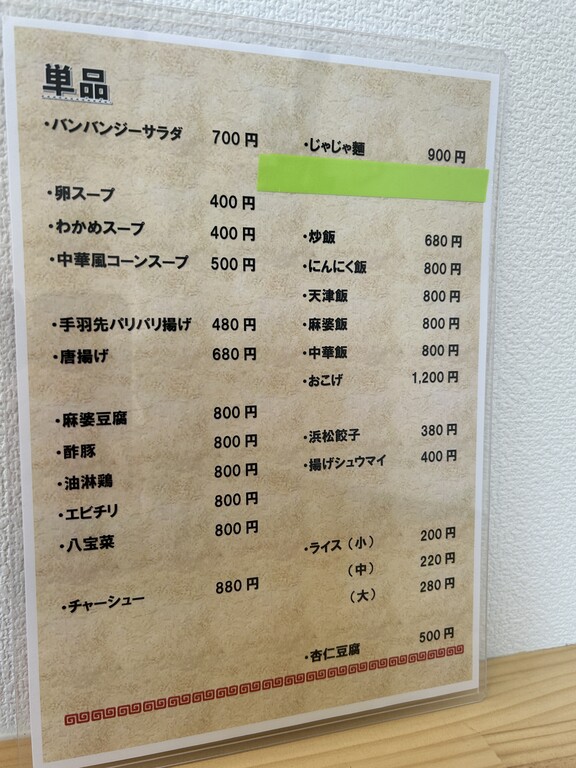 単品
・バンバンジーサラダ 700円
・卵スープ 400円
・わかめスープ 400円
・中華風コーンスープ 500円
・手羽先パリパリ揚げ 480円
・唐揚げ 680円
・麻婆豆腐 800円
・酢豚 800円
・油淋鶏 800円
・エビチリ 800円
・八宝菜 800円
・チャーシュー 880円
・じゃじゃ麺 900円
・炒飯 680円
・にんにく飯 800円
・天津飯 800円
・麻婆飯 800円
・中華飯 800円
・おこげ 1,200円
・浜松餃子 380円
・揚げシュウマイ 400円
・ライス（小） 200円
（中） 220円
（大） 280円
・杏仁豆腐 500円